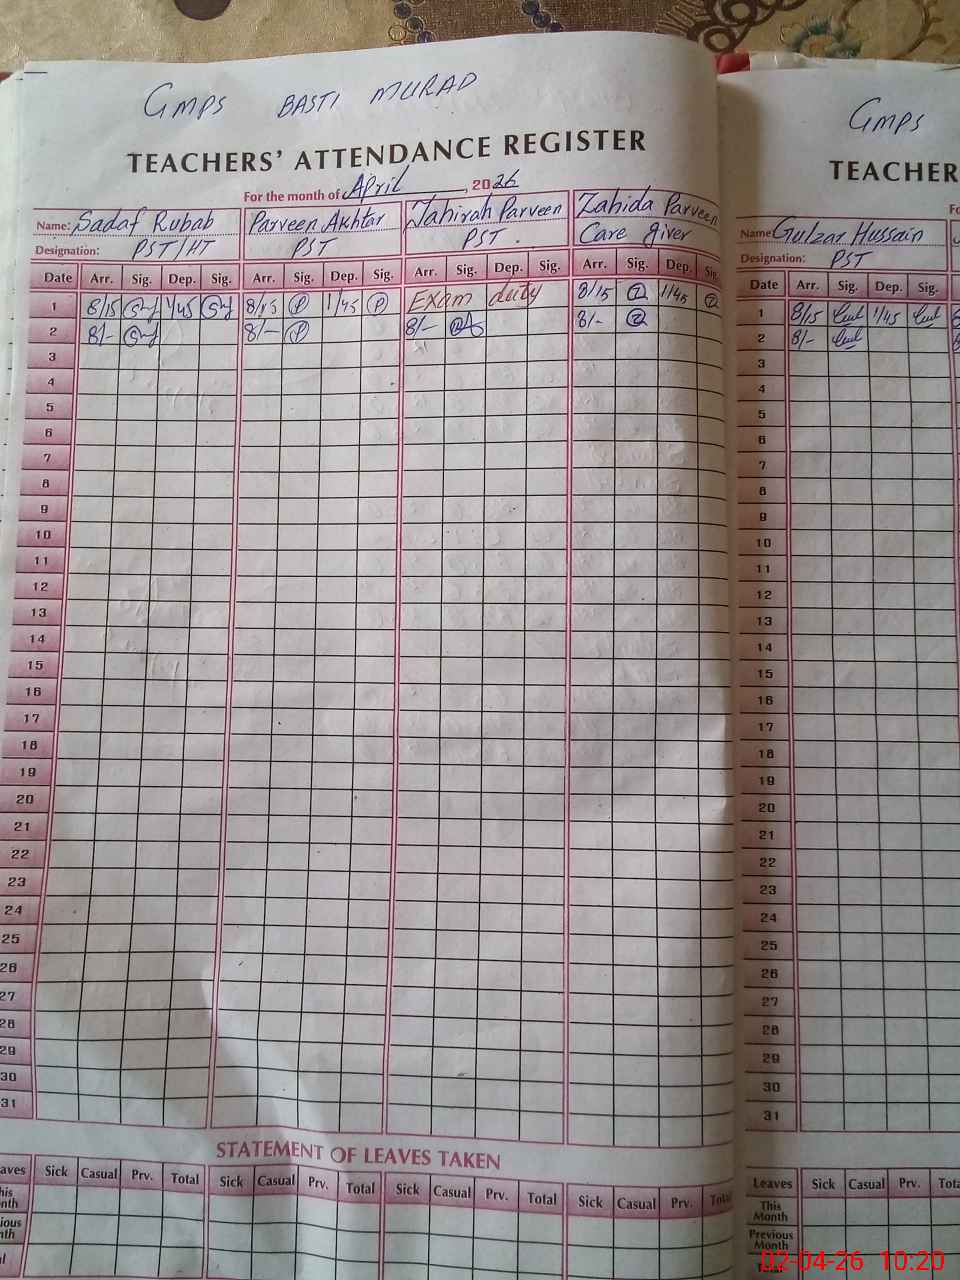 GMPS BASTI MURAD
TEACHERS' ATTENDANCE REGISTER
For the month of April, 2026
Name: Sadaf Rubab Parveen Akhtar Tahirah Parveen Zahida Parveen
Designation: PST/HT PST PST. Care giver
Date Arr. Sig. Dep. Sig. Arr. Sig. Dep. Sig. Arr. Sig. Dep. Sig. Arr. Sig. Dep. Sig.
1 8/15 1/45 8/15 P 1/45 P Exam duty 8/15 Z 1/45 Z
2 8/- 8/- P 8/- 8/- Z
3
4
5
6
7
8
9
10
11
12
13
14
15
16
17
18
19
20
21
22
23
24
25
26
27
28
29
30
31
STATEMENT OF LEAVES TAKEN
aves Sick Casual Prv. Total Sick Casual Prv. Total Sick Casual Prv. Total Sick Casual Prv. Total
his
nth
ious
nth
GMPS
TEACHER
Name Gulzar Hussain
Designation: PST
Date Arr. Sig. Dep. Sig.
1 8/15 1/45
2 8/-
3
4
5
6
7
8
9
10
11
12
13
14
15
16
17
18
19
20
21
22
23
24
25
26
27
28
29
30
31
Leaves Sick Casual Prv. Tota
This
Month
Previous
Month
02-04-26 10:20